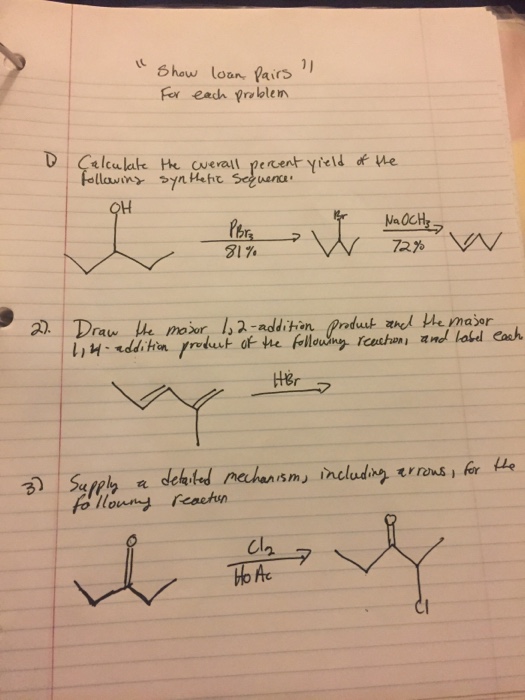 " Show loan Pairs "
For each problem
1) Calculate the overall percent yield of the
following synthetic sequence.
OH
PBr3
81%
Br
NaOCH3
72%
2). Draw the major 1,2-addition product and the major
1,4-addition product of the following reaction, and label each
HBr
3) Supply a detailed mechanism, including arrows, for the
following reaction
O
Cl2
HoAc
O
Cl